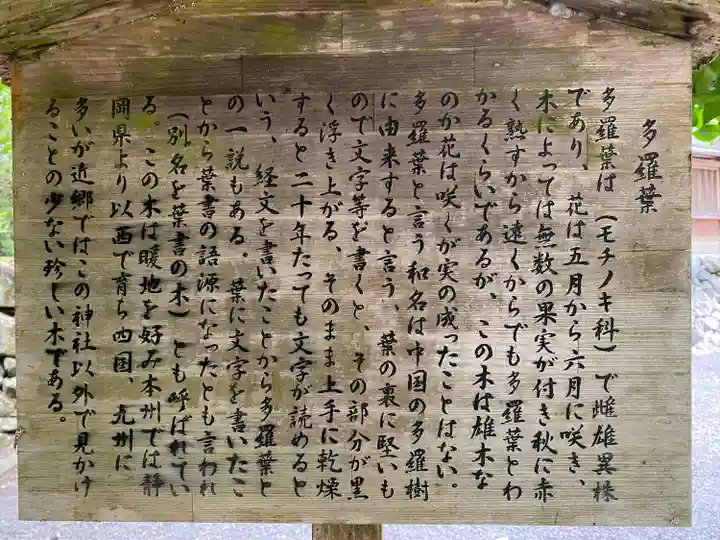 多羅葉
多羅葉は（モチノキ科）で雌雄異株
であり、花は五月から六月に咲き、
木によっては無数の果実が付き秋に赤
く熟すから遠くからでも多羅葉とわ
かるくらいであるが、この木は雄木な
のか花は咲くが実の成ったことはない。
多羅葉と言う和名は中国の多羅樹
に由来すると言う、葉の裏に堅いも
ので文字等を書くと、その部分が黒
く浮き上がる、そのまま上手に乾燥
すると二十年たっても文字が読めると
いう、経文を書いたことから多羅葉と
の一説もある。葉に文字を書いたこ
とから葉書の語源になったとも言われ
（別名を葉書の木）とも呼ばれてい
る。この木は暖地を好み本州では静
岡県より以西で育ち四国、九州に
多いが近郷ではこの神社以外で見かけ
ることの少ない珍しい木である。